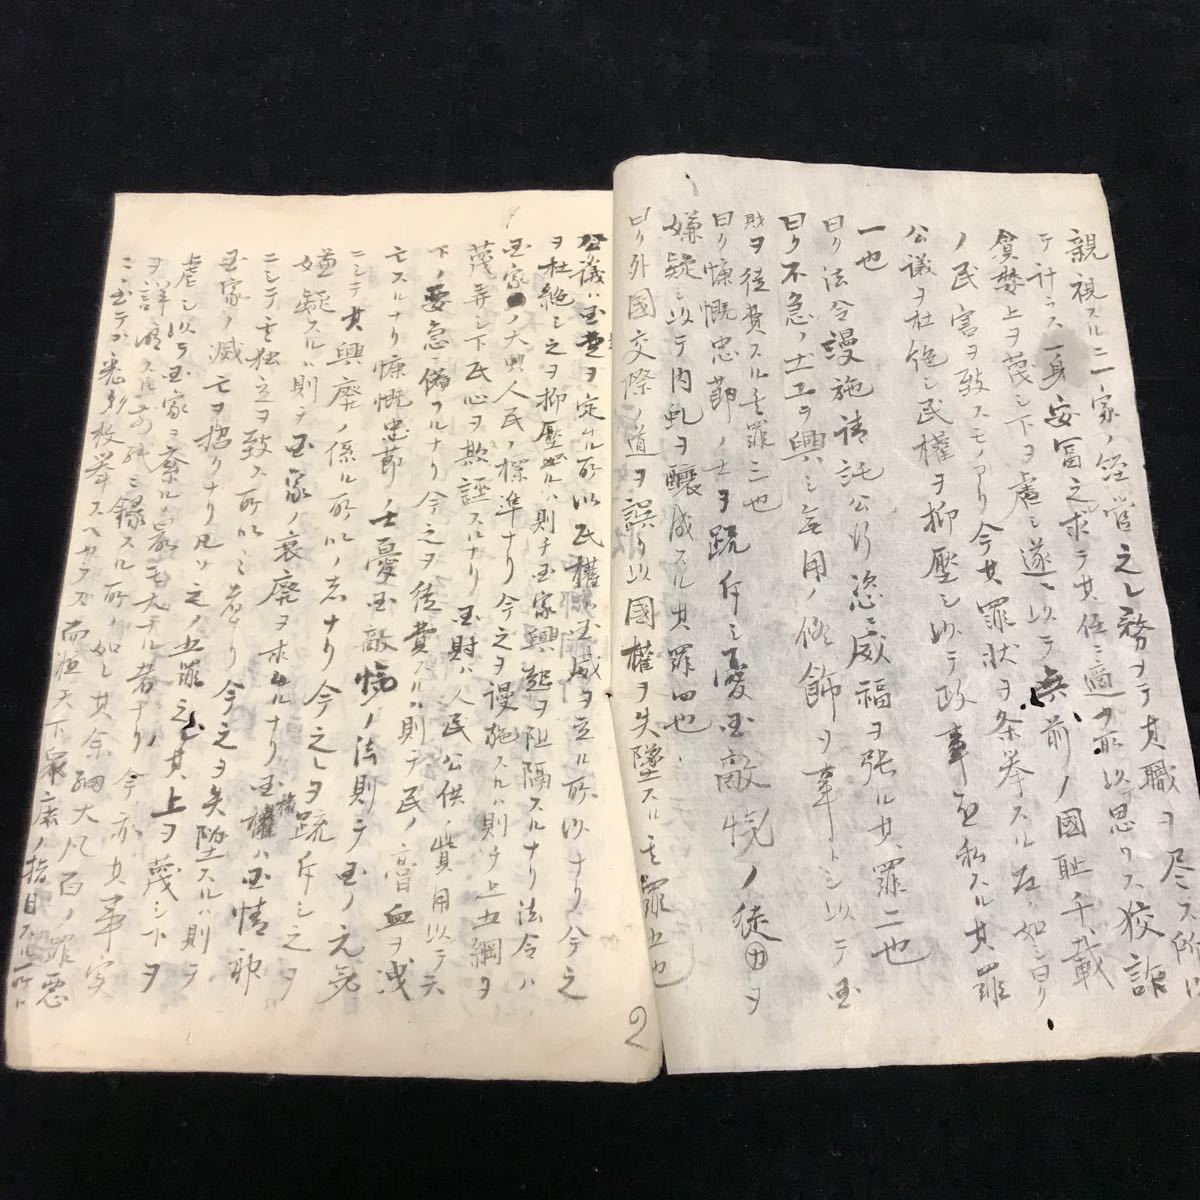 親視スルニ一家ノ経営之レ務ヲテ其職ヲ尽ス所以
テ計ラス一身安冨之求テ其任ニ適フ所以思ワス狡詐
貪婪上ヲ蔑シ下ヲ虐シ遂ヽ以テ無前ノ國耻千載
ノ民害ヲ致スモノアリ今其罪状ヲ条挙スル左ノ如シ曰ク
公議ヲ杜絶シ民權ヲ抑壓シ以テ政事ヲ私スル其罪
一也
曰ク法令謾施請託公行恣ニ威福ヲ張ル其罪二也
曰ク不急ノ土工ヲ興ハシ無用ノ修飾ヲ事トシ以テ国
財ヲ徒費スル其罪三也
曰ク慷慨忠節ノ士ヲ疏斥シ憂国敵愾ノ徒ヲ
嫌疑シ以テ内乱ヲ醸成スル其罪四也
曰ク外國交際ノ道ヲ誤リ以國權ヲ失墜スル其罪五也
公議ハ国是ヲ定ル所以民權ハ国威ヲ立ル所以ナリ今之
ヲ杜絶シ之ヲ抑壓スルハ則チ国家興起ヲ阻隔スルナリ法令ハ
国家ノ大典人民ノ標準ナリ今之ヲ謾施スルハ則チ上五綱ヲ
蔑弄シ下民心ヲ欺誣スルナリ国財ハ人民公供ノ費用以テ天
下ノ要急ニ備フルナリ今之ヲ徒費スルハ則テ民ノ膏血ヲ洩
モスルナリ慷慨忠節ノ士憂国敵愾ノ法則テ国ノ元気
ニシテ其興廃ノ係ル所以ノ者ナリ今之レヲ疏斥シ之ヲ
嫌疑スルハ則テ国家ノ衰廃ヲ求ルナリ国權ハ国情
ニシテ其独立ヲ致ス所以ノ者ナリ今之ヲ失墜スルハ則テ
国家ノ滅亡ヲ招クナリ凡ソ之ノ五罪之其上ヲ蔑シ下ヲ
虐シ以テ国家ヲ紊ル最モ大ナル者ナリ今亦其事実
ヲ詳明スル別録スル所ノ如シ其余細大凡百ノ罪悪
ニ至テハ悉ク枚挙スヘカラス而液天下衆庶ノ指目スル所
2